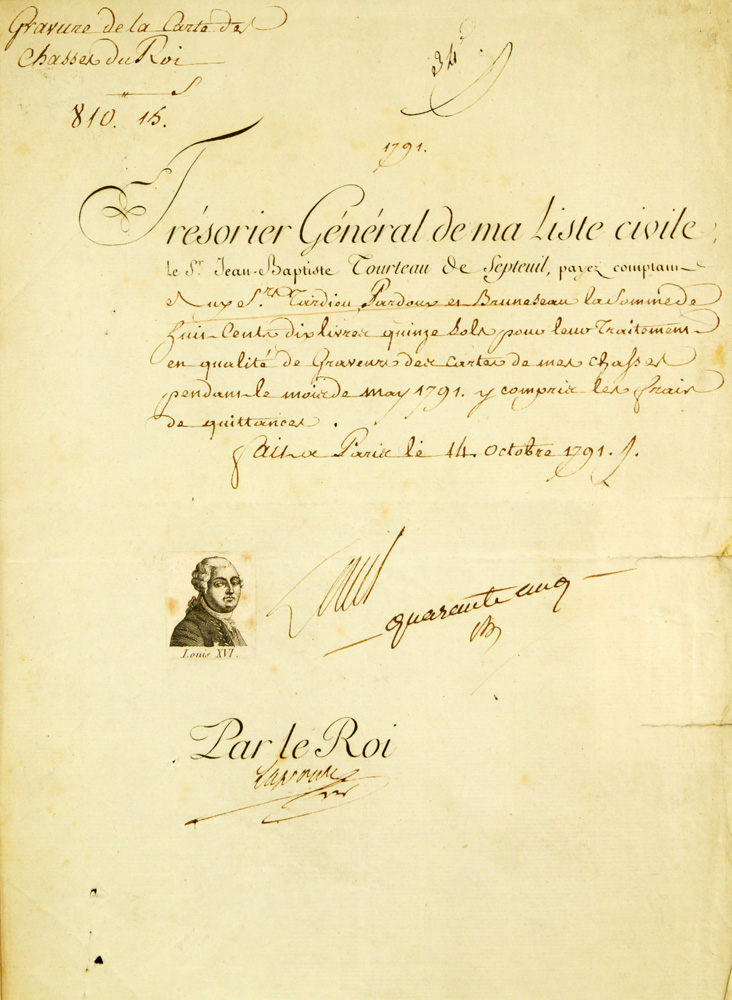 Gravure de la Carte des
Chasses du Roi
810. 15.
34
1791.
Trésorier Général de ma Liste civile,
le Sr. Jean-Baptiste Tourteau de Septeuil, payez comptant
aux Srs. Tardieu, Pardoux et Bruneseau la Somme de
huit Cents dix livres quinze Sols pour leur Traitement
en qualité de Graveurs des Cartes de mes chasses
pendant le mois de may 1791. y compris les frais
de quittances.
fait a Paris le 14. Octobre 1791.
Louis
quarante cinq
Louis XVI.
Par le Roi
Laporte